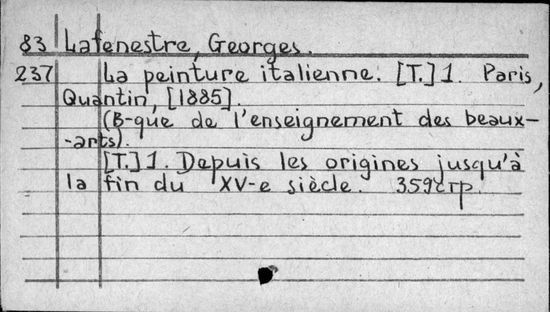 83 Lafenestre, Georges.
237 La peinture italienne. [T.] 1. Paris,
Quantin, [1885].
(B-que de l'enseignement des beaux-
-arts).
[T.] 1. Depuis les origines jusqu'à
la fin du XV-e siècle. 359стр.